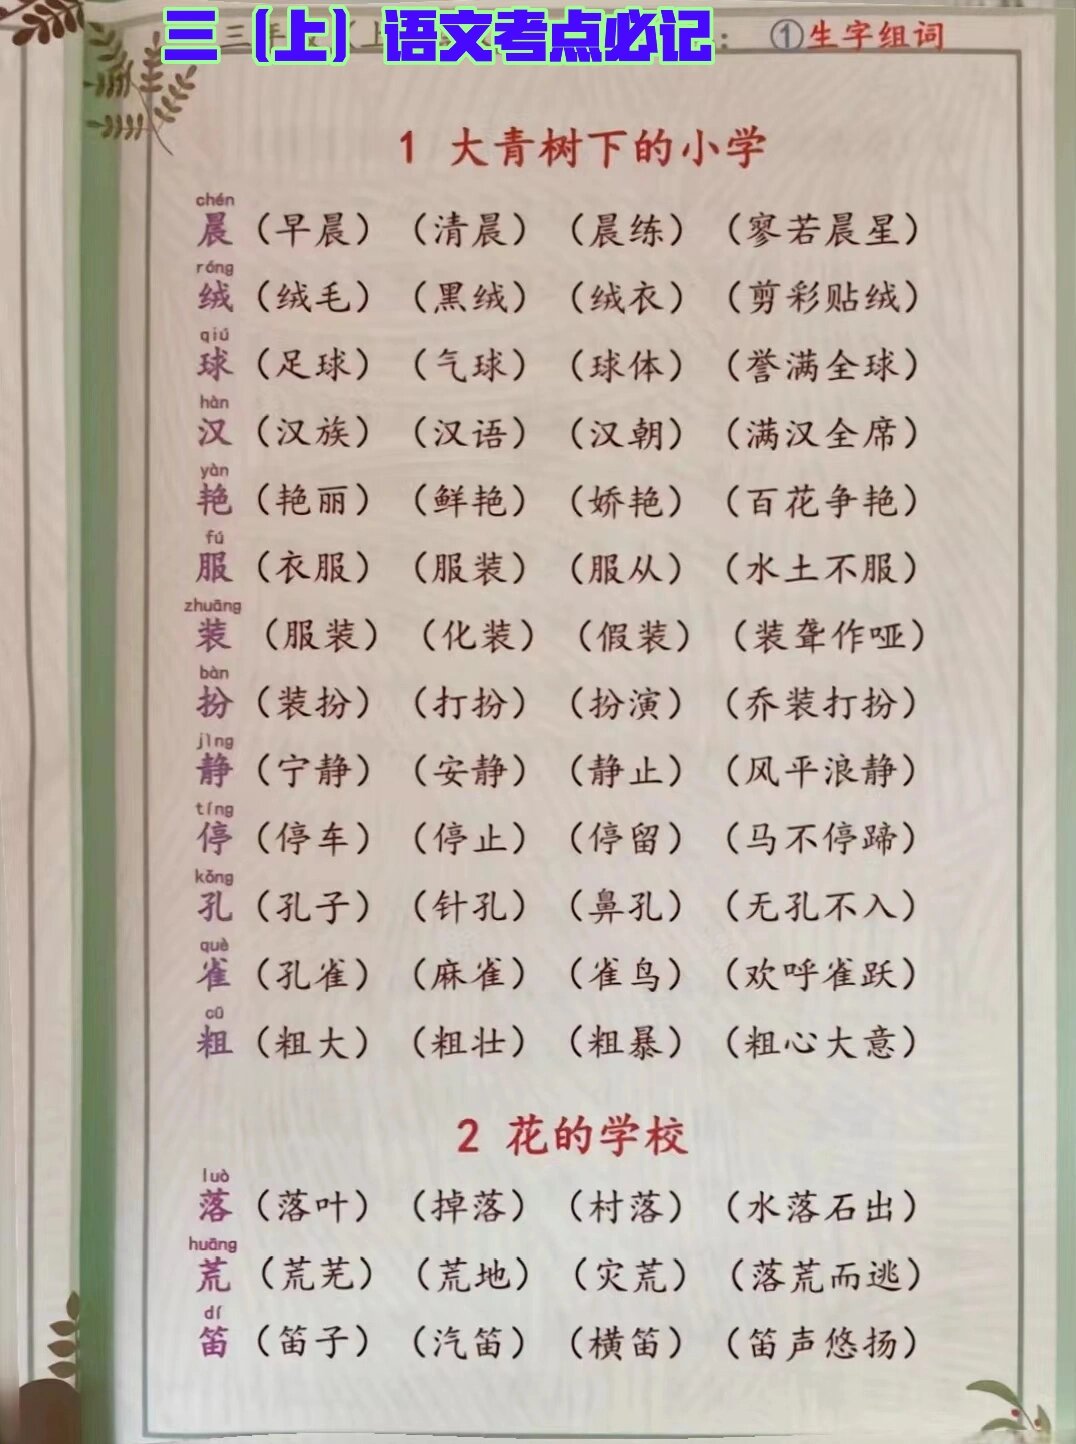 三（上）语文考点必记
①生字组词
1 大青树下的小学
chén
晨（早晨）（清晨）（晨练）（寥若晨星）
róng
绒（绒毛）（黑绒）（绒衣）（剪彩贴绒）
qiú
球（足球）（气球）（球体）（誉满全球）
hàn
汉（汉族）（汉语）（汉朝）（满汉全席）
yàn
艳（艳丽）（鲜艳）（娇艳）（百花争艳）
fú
服（衣服）（服装）（服从）（水土不服）
zhuāng
装（服装）（化装）（假装）（装聋作哑）
bàn
扮（装扮）（打扮）（扮演）（乔装打扮）
jìng
静（宁静）（安静）（静止）（风平浪静）
tíng
停（停车）（停止）（停留）（马不停蹄）
kǒng
孔（孔子）（针孔）（鼻孔）（无孔不入）
què
雀（孔雀）（麻雀）（雀鸟）（欢呼雀跃）
cū
粗（粗大）（粗壮）（粗暴）（粗心大意）
2 花的学校
luò
落（落叶）（掉落）（村落）（水落石出）
huāng
荒（荒芜）（荒地）（灾荒）（落荒而逃）
dí
笛（笛子）（汽笛）（横笛）（笛声悠扬）